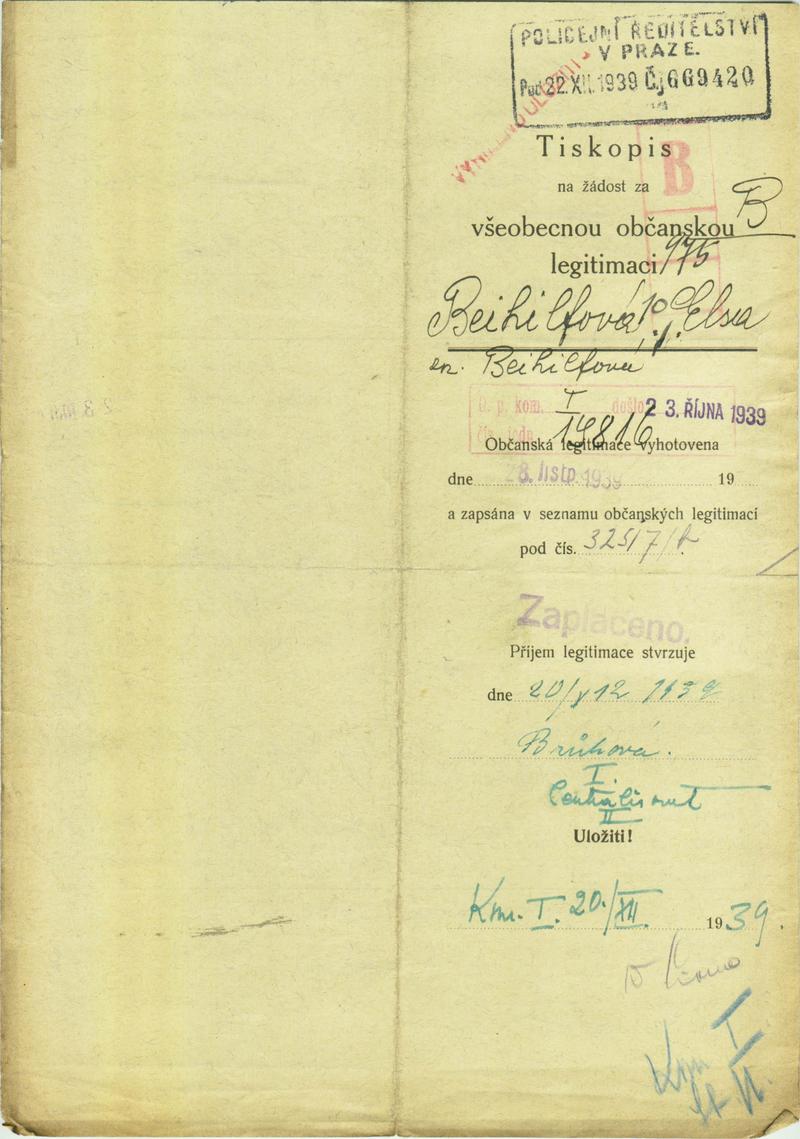 POLICEJNÍ ŘEDITELSTVÍ
V PRAZE.
22. XII. 1939 Čj 669420
Tiskopis
B
na žádost za
všeobecnou občanskou B
legitimaci 175
Beihilfová Elsa
Beihilfová
D. p. kom. I došlo 23. ŘÍJNA 1939
14816
Občanská legitimace vyhotovena
dne 28. listp. 1939 19
a zapsána v seznamu občanských legitimací
pod čís. 3251/7/
Zaplaceno.
Příjem legitimace stvrzuje
dne 20/12 1939
Brůhová.
I.
II
Uložiti!
Kom. I. 20./XII. 1939.
Kom I
II.